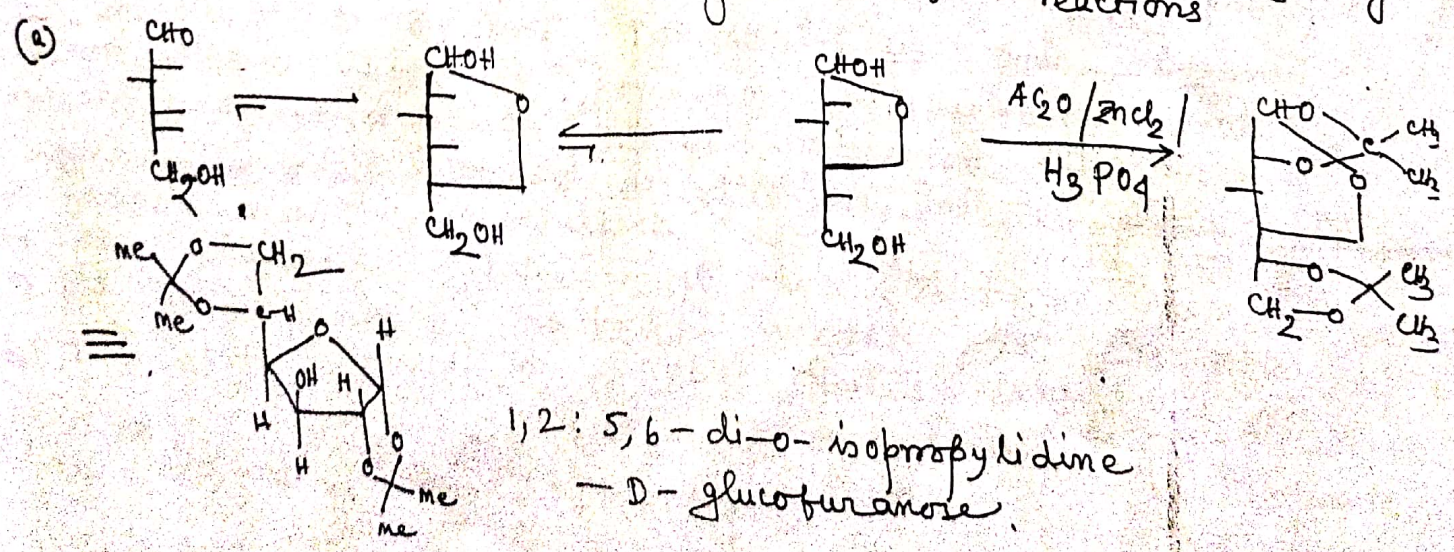 reactions
(a)
CHO
CH2OH
CHOH
O
CH2OH
CHOH
O
CH2OH
AC2O/ZnCl2/
H3PO4
CHO
O
C
CH3
CH3
O
O
CH3
CH2—O
CH3
me
O—CH2
me
O—C—H
O
H
OH
H
H
H
O
O
me
me
1,2: 5,6 – di–o– isopropylidine
– D – glucofuranose.